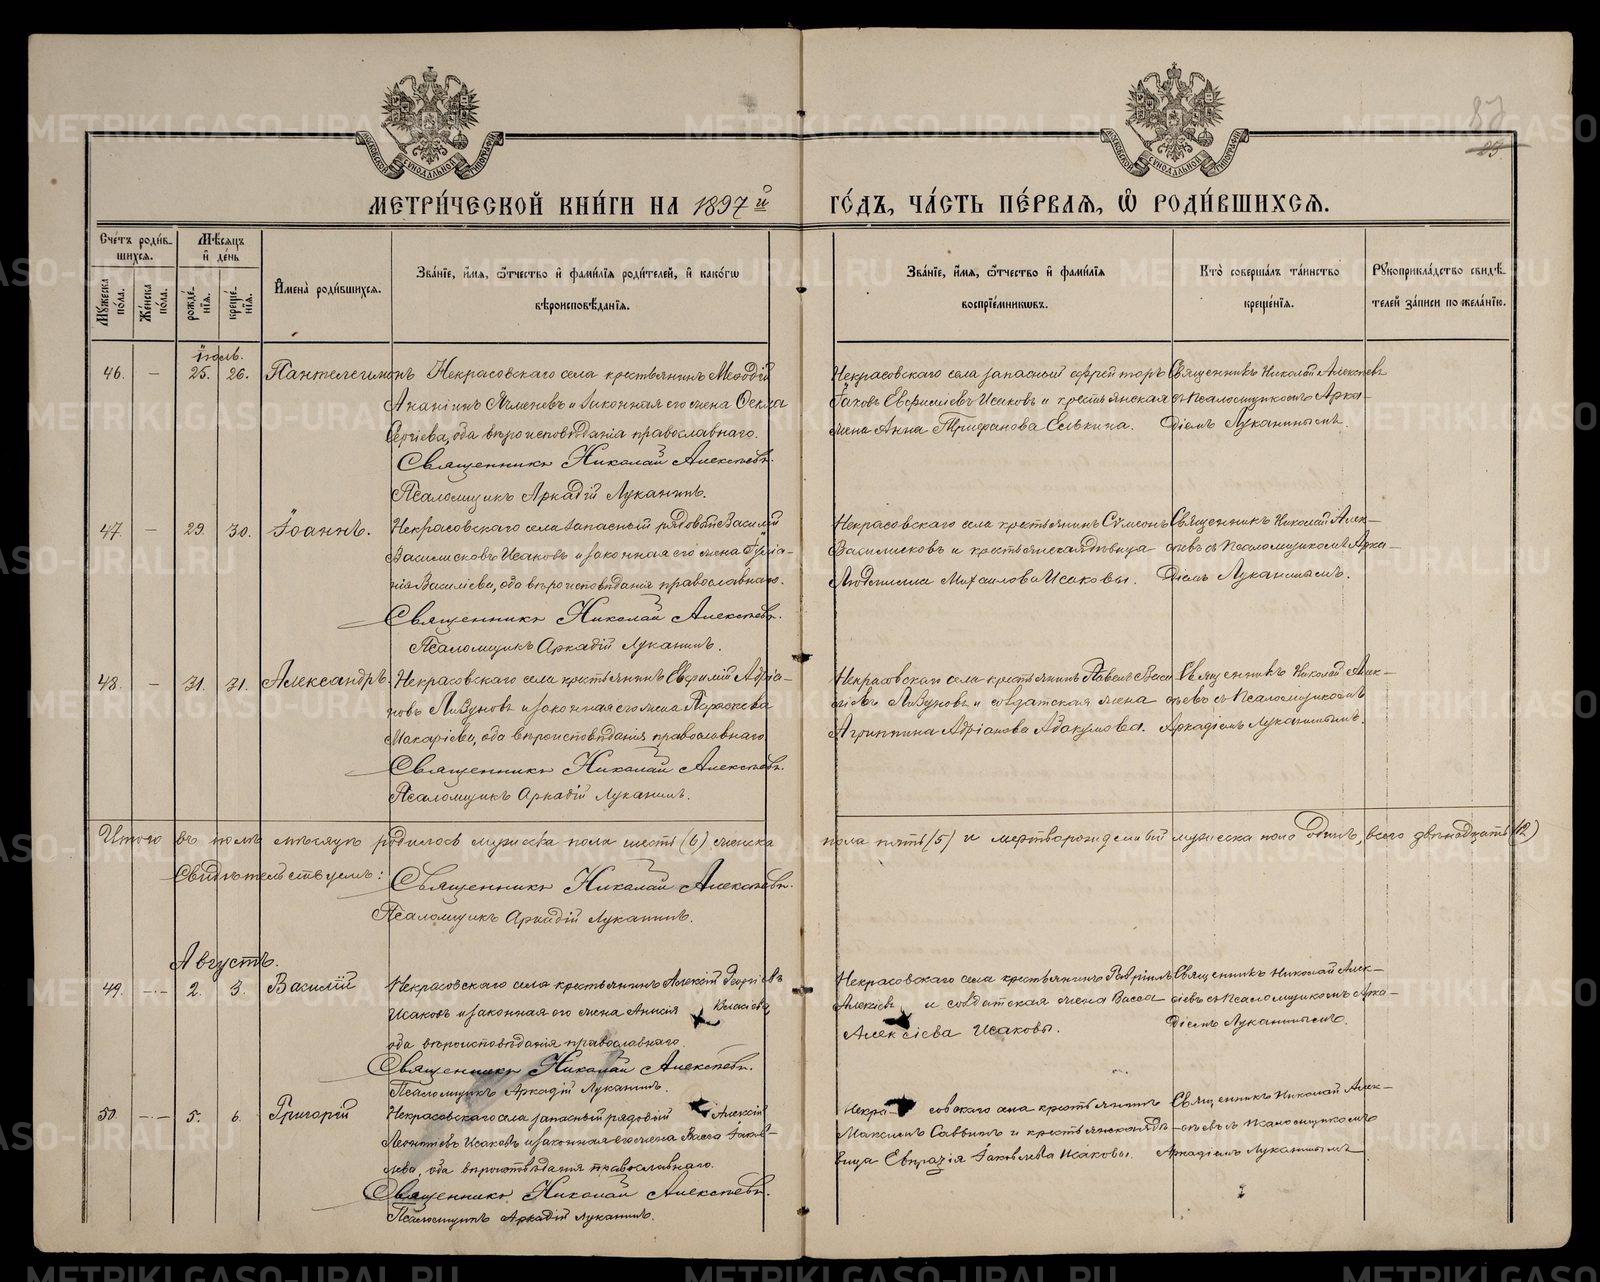 МЕТРИ́ЧЕСКОЙ КНИ́ГИ НА 1897й ГО́ДЪ, ЧА́СТЬ ПЕ́РВАЯ, Ѡ РОДИ́ВШИХСЯ.
87
Сче́тъ роди́в-
шихся.
Мѣ́сяцъ
и де́нь
Му́жеска по́ла.
Же́нска по́ла.
рожде́-
нія.
креще́-
нія.
Имена̀ роди́вшихся.
Зва́ніе, и́мя, ѻ́тчество и фами́лія роди́телей, и како́гѡ
вѣроисповѣ́данія.
Зва́ніе, и́мя, ѻ́тчество и фами́лія
воспріе́мниковъ.
Кто̀ соверша́лъ та́инство
креще́нія.
Рукоприкла́дство свидѣ́-
телей за́писи по жела́нію.
Іюль.
46. — 25. 26. Пантелеимонъ Некрасовскаго села крестьянинъ Меѳодій
Ананіинъ Ячменевъ и законная его жена Ѳекла
Сергіева, оба вѣроисповѣданія православнаго.
Священникъ Николай Алексѣевъ.
Псаломщикъ Аркадій Луканинъ.
Некрасовскаго села запасный ефрейторъ
Іаковъ Евфиміевъ Исаковъ и крестьянская
жена Анна Трифанова Селькина.
Священникъ Николай Алексѣевъ
съ Псаломщикомъ Арка-
діемъ Луканинымъ.
47. — 29. 30. Іоаннъ. Некрасовскаго села запасный рядовый Василій
Василисковъ Исаковъ и законная его жена Іуліа-
нія Васильева, оба вѣроисповѣданія православнаго.
Священникъ Николай Алексѣевъ.
Псаломщикъ Аркадій Луканинъ.
Некрасовскаго села крестьянинъ Сѵмеонъ
Василисковъ и крестьянская дѣвица
Людмилла Михаилова Исаковы.
Священникъ Николай Алек-
сѣевъ съ Псаломщикомъ Арка-
діемъ Луканинымъ.
48. — 31. 31. Александръ. Некрасовскаго села крестьянинъ Евфимій Адріа-
новъ Лизуновъ и законная его жена Параскева
Макаріева, оба вѣроисповѣданія православнаго
Священникъ Николай Алексѣевъ.
Псаломщикъ Аркадій Луканинъ.
Некрасовскаго села крестьянинъ Павелъ
Лизуновъ и солдатская жена
Агриппина Адріанова Абакумова.
Священникъ Николай Алек-
сѣевъ съ Псаломщикомъ
Аркадіемъ Луканинымъ.
Итого въ іюлѣ мѣсяцѣ родилось мужеска пола шесть (6) женска пола пять (5) и мертворожденный мужеска пола одинъ, всего двѣнадцать (12)
Свидѣтельствуемъ: Священникъ Николай Алексѣевъ.
Псаломщикъ Аркадій Луканинъ.
Августъ.
49. — 2. 3. Василій Некрасовскаго села крестьянинъ Алексій Георгіевъ
Исаковъ и законная его жена Анисія Власіева,
оба вѣроисповѣданія православнаго.
Священникъ Николай Алексѣевъ.
Псаломщикъ Аркадій Луканинъ.
Некрасовскаго села крестьянинъ Гавріилъ
Алексіевъ и солдатская жена Васса
Алексіева Исаковы.
Священникъ Николай Алек-
сѣевъ съ Псаломщикомъ Арка-
діемъ Луканинымъ.
50 — 5. 6. Григорій Некрасовскаго села запасный рядовый Алексій
Леонтіевъ Исаковъ и законная его жена Васса Іаков-
лева, оба вѣроисповѣданія православнаго.
Священникъ Николай Алексѣевъ.
Псаломщикъ Аркадій Луканинъ.
Некрасовскаго села крестьянинъ
Максимъ Саввинъ и крестьянская дѣ-
вица Евпраксія Іаковлева Исаковы.
Священникъ Николай Алек-
сѣевъ съ Псаломщикомъ
Аркадіемъ Луканинымъ
METRIKI.GASO-URAL.RU